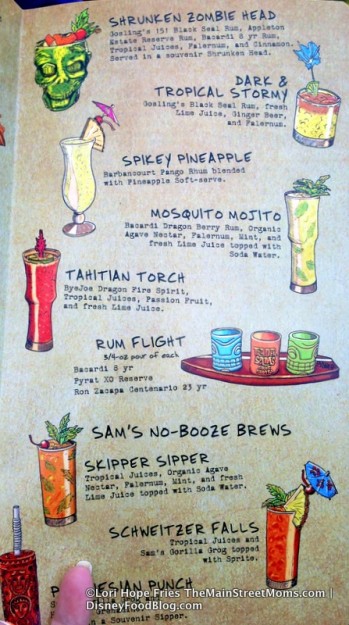 SHRUNKEN ZOMBIE HEAD
Gosling's 151 Black Seal Rum, Appleton
Estate Reserve Rum, Bacardi 8 yr Rum,
Tropical Juices, Falernum, and Cinnamon.
Served in a souvenir Shrunken Head.
DARK &
TROPICAL STORMY
Gosling's Black Seal Rum, fresh
Lime Juice, Ginger Beer,
and Falernum.
SPIKEY PINEAPPLE
Barbancourt Pango Rhum blended
with Pineapple Soft-serve.
MOSQUITO MOJITO
Bacardi Dragon Berry Rum, Organic
Agave Nectar, Falernum, Mint, and
fresh Lime Juice topped with
Soda Water.
TAHITIAN TORCH
ByeJoe Dragon Fire Spirit,
Tropical Juices, Passion Fruit,
and fresh Lime Juice.
RUM FLIGHT
3/4-oz pour of each
Bacardi 8 yr
Pyrat XO Reserve
Ron Zacapa Centenario 23 yr
SAM'S NO-BOOZE BREWS
SKIPPER SIPPER
Tropical Juices, Organic Agave
Nectar, Falernum, Mint, and fresh
Lime Juice topped with Soda Water.
SCHWEITZER FALLS
Tropical Juices and
Sam's Gorilla Grog topped
with Sprite.
P NESIAN PUNCH
©Lori Hope Fries TheMainStreetMoms.com |
DisneyFoodBlog.com
n a Souvenir